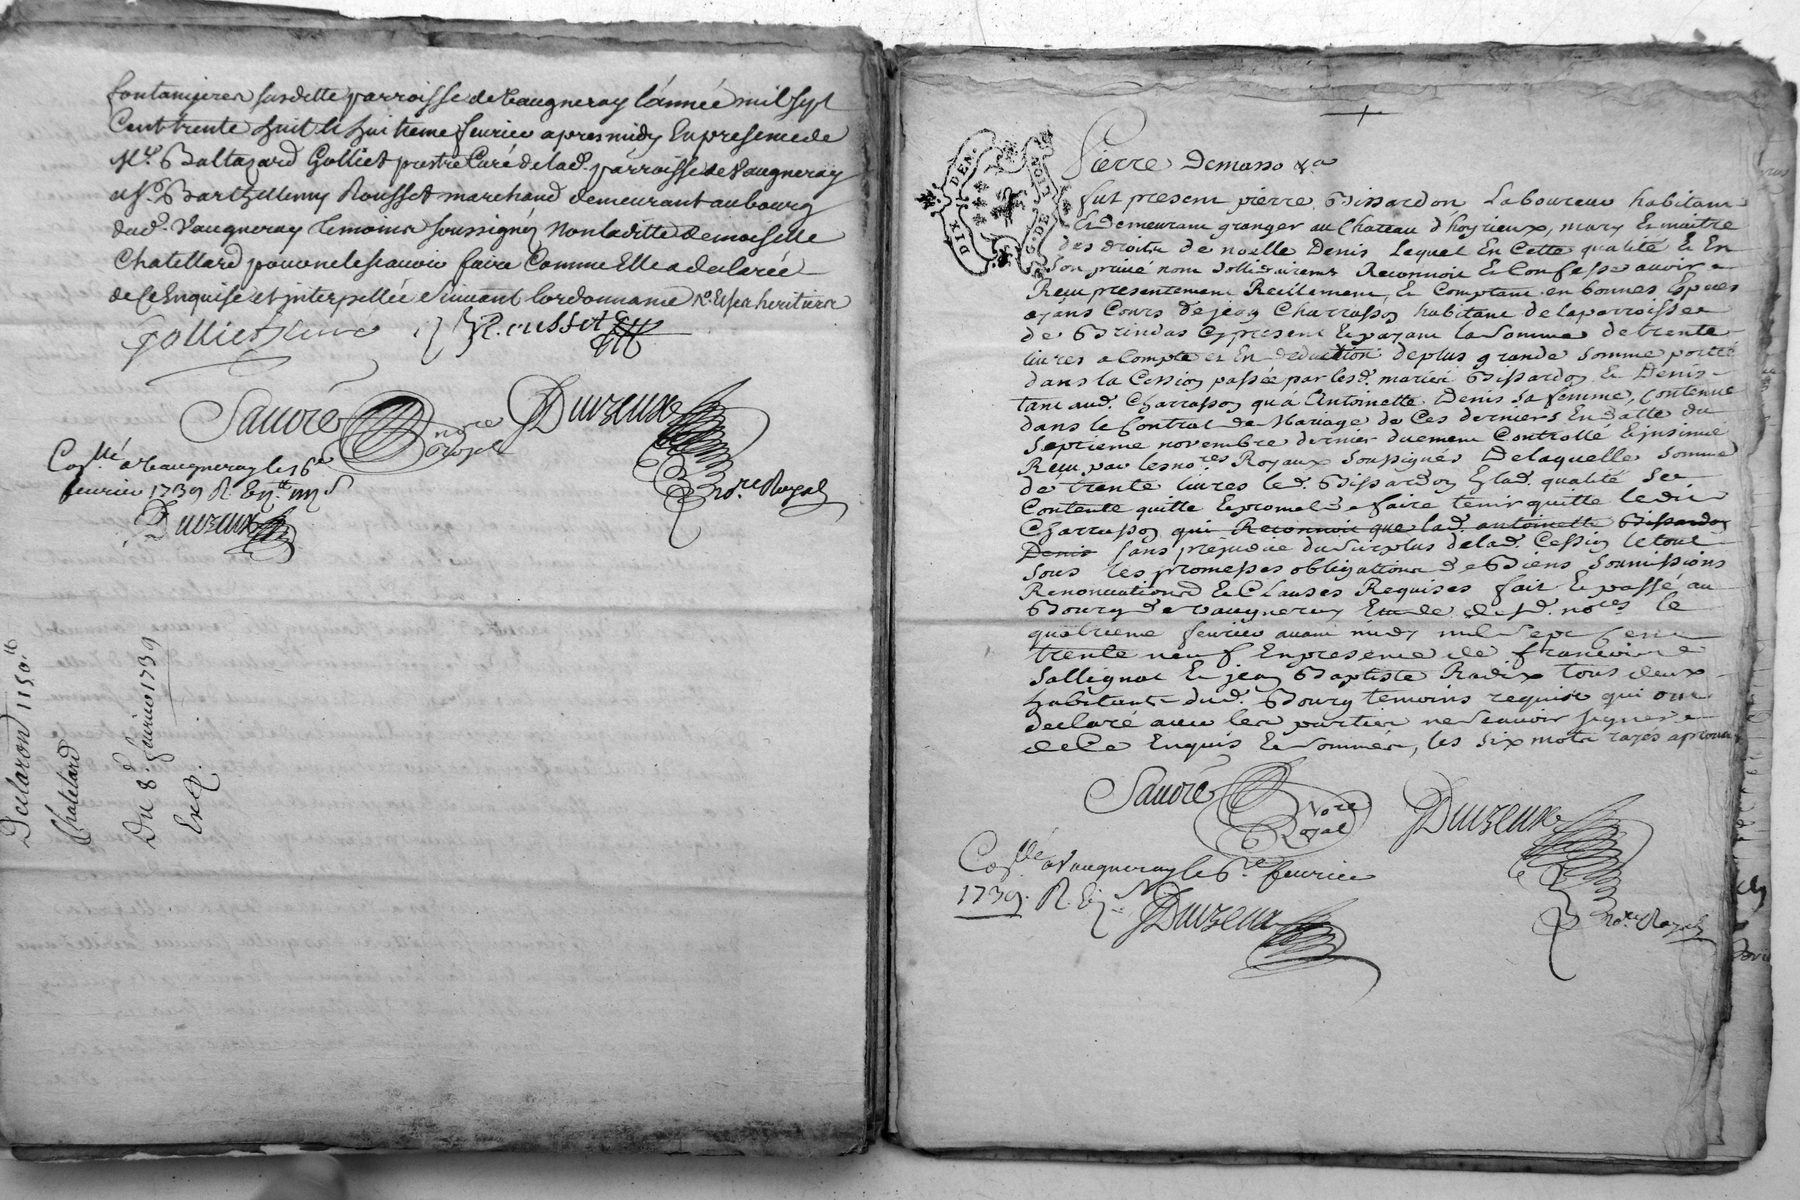 fontanieres susditte parroisse de Vaugneray l'année mil sept
Cent trente huit le huitieme fevrier apres midy En presence de
Mre. Baltazard Golliet prestre Curé de lad. parroisse de Vaugneray
et Sr. Barthellemy Rousset marchand demeurant au bourg
dud. Vaugneray temoins soussignés Non laditte demoiselle
Chatellard pour ne le scavoir faire Comme Elle a declarée
de Ce Enquise et interpellée suivant l'ordonnance
golliet curé Rousset
Sauoré nore Royal Duvzeux nore. Royal
Conllé a Vaugneray le 16e
fevrier 1739 R.
Duvzeux
Declaraon 1150lt
Châtelard
Du 8e. fevrier 1739
Exp.
DIX DEN. LION G. DE
Pierre Demasso &a
fut present pierre Bissardon Laboureur habitant
Et demeurant granger au Chateau d'hoyrieux, mary Et maitre
des droits de noelle Denis Lequel En Cette qualité Et En
son privé nom sollidairement Reconnoit Et Confesse avoir
Reçu presentement Reellement Et Comptant en bonnes Especes
ayant Cours de jean Charrasson habitant de la parroisse
de Brindas Cy present Et payant la somme de trente
livres a Compte et En deduction de plus grande somme portée
dans la Cession passée par lesd. mariés Bissardon Et Denis
tant aud. Charrasson qu'a Antoinette Denis sa femme, Contenue
dans le Contrat de Mariage de Ces derniers En datte du
septieme novembre dernier duement Controllé Et insinué
Reçu par les nores Royaux soussignés De laquelle somme
de trente livres led. Bissardon Esd. qualité se
Contente quitte Et promet faire tenir quitte ledit
Charrasson qui Reconnoit que lad. antoinette Bissardon
Denis sans prejudice du surplus de lad. Cession le tout
sous les promesses obligations de Biens soumissions
Renonciations Et Clauses Requises fait Et passé au
Bourg de Vaugneray Etude desd. nores le
quatrieme fevrier avant midy mil sept Cent
trente neuf En presence de francois
Sallignat Et jean Baptiste Radix tous deux
habitants dud. Bourg temoins requis qui ont
declaré avec les parties ne scavoir signer
de Ce Enquis Et sommés, les six mots rayés aprouvés
Sauoré Nore Royal Duvzeux nore. Royal
Conllé a Vaugneray le 6e. fevrier
1739. R.
Duvzeux